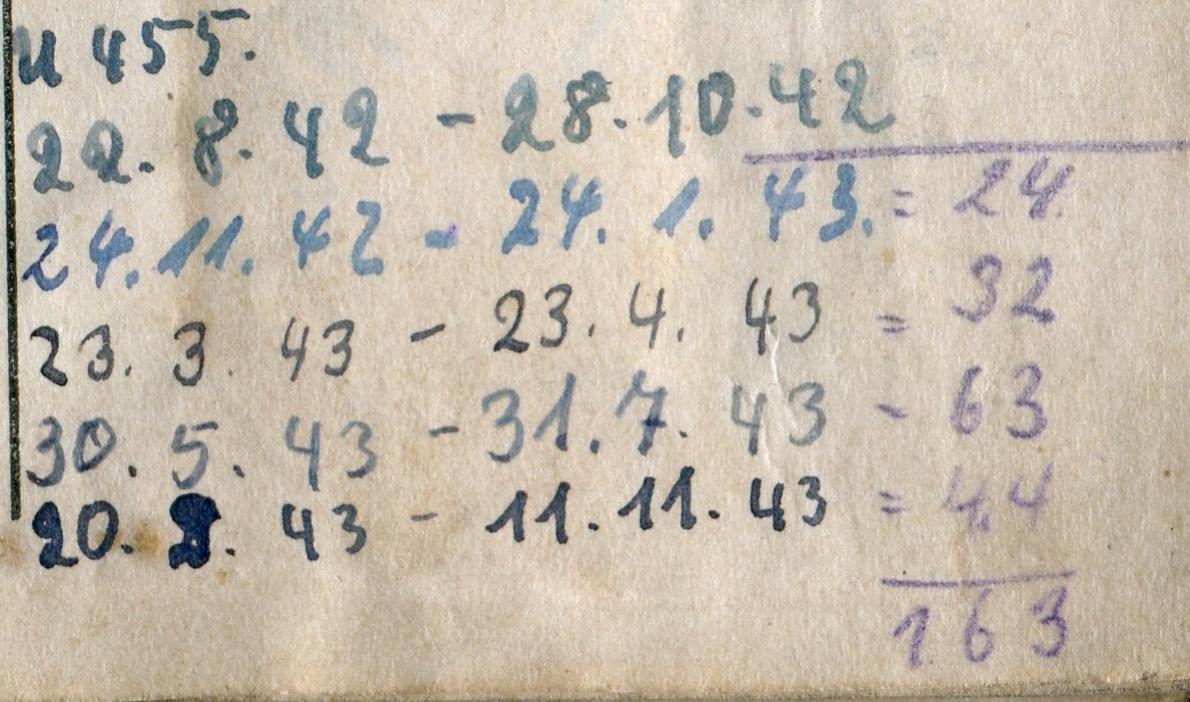 U 455.
22. 8. 42 - 28. 10. 42
24. 11. 42 - 24. 1. 43. = 24.
23. 3. 43 - 23. 4. 43 = 32
30. 5. 43 - 31. 7. 43 - 63
20. 43 - 11. 11. 43 = 44
163